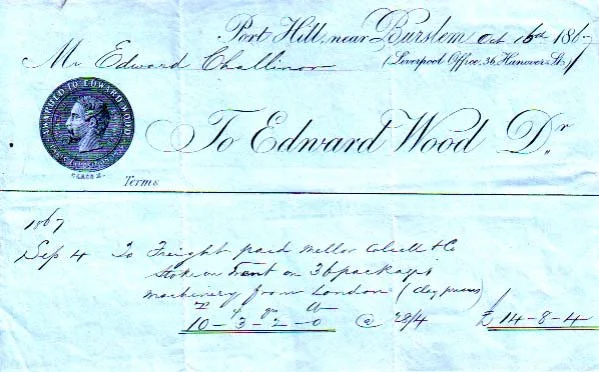 Port Hill, near Burslem Oct 16th 1867
Mr Edward Challinor
(Liverpool Office, 36 Hanover St.)
AWARDED TO EDWARD WOOD
CLASS
To Edward Wood Dr.
Terms
1867
Sep 4 To Freight paid Mellor & Co
Stoke on Trent on 36 packages
machinery from London (clay presses)
10-3-2-0 @ 28/4 £14-8-4